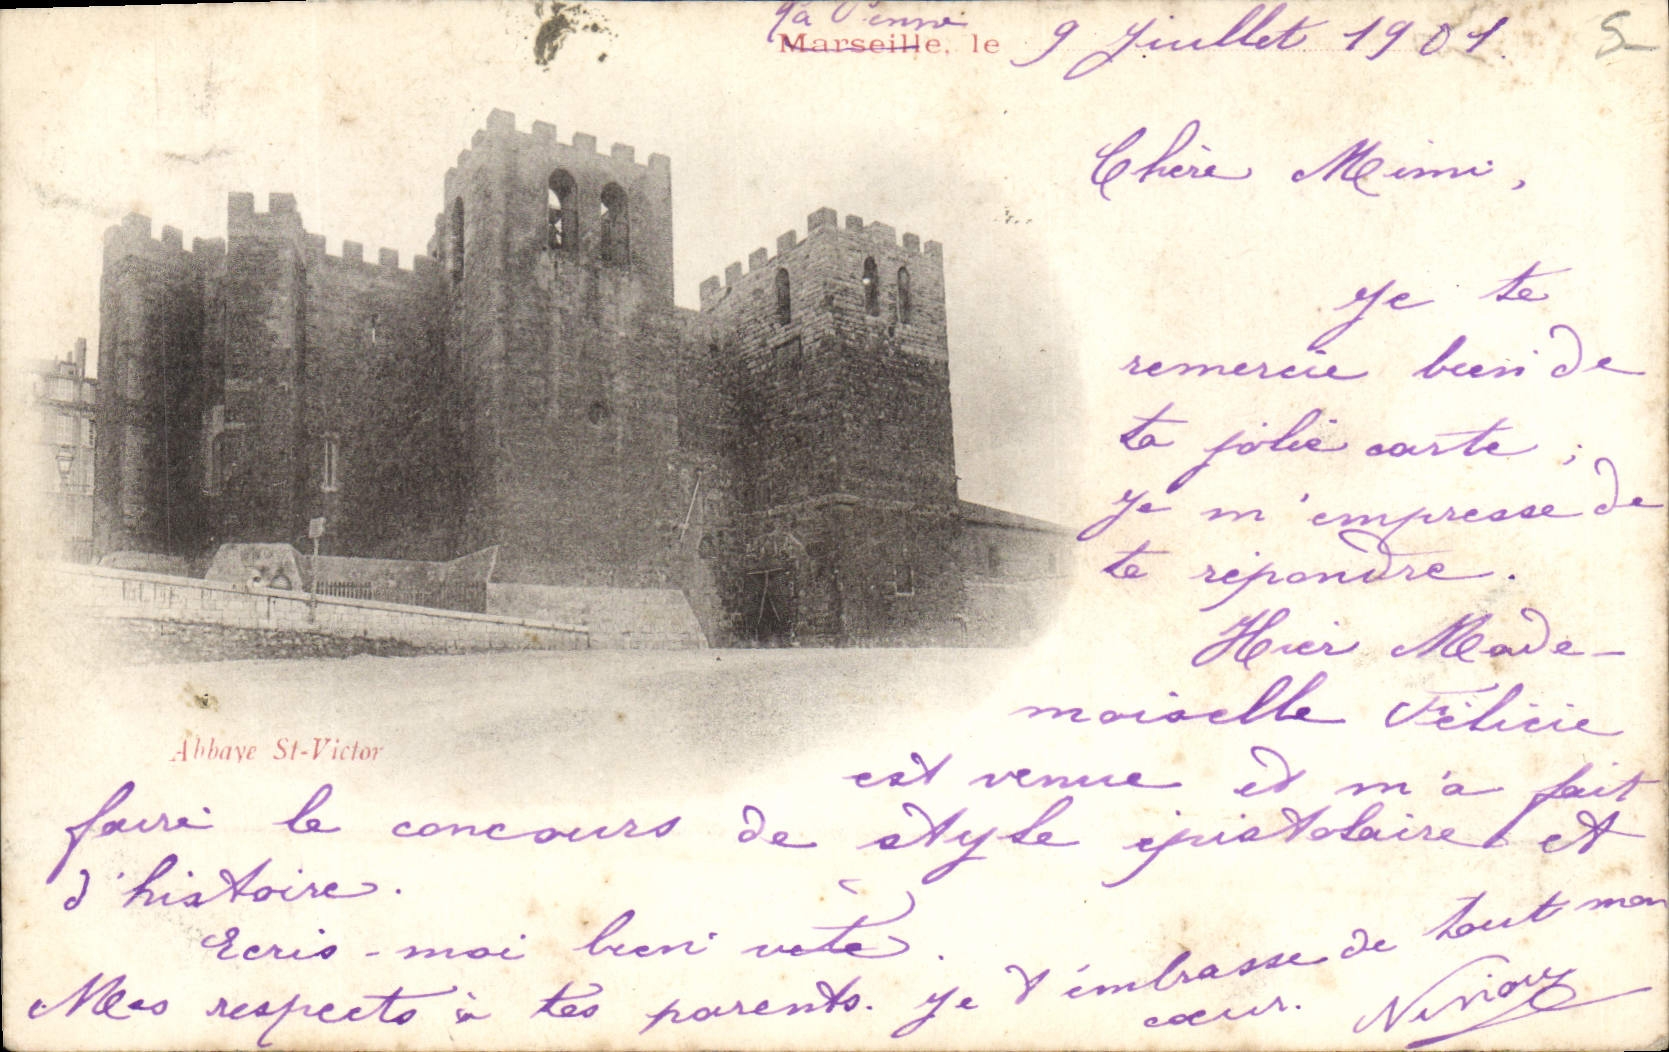 La Penne
Marseille, le 9 Juillet 1901
Chère Mimi,
Je te
remercie bien de
ta jolie carte ;
je m'empresse de
te répondre.
Hier Made-
moiselle Félicie
est venue et m'a fait
faire le concours de style épistolaire et
d'histoire.
Ecris-moi bien vite.
Mes respects à tes parents. Je t'embrasse de tout mon
cœur.
Abbaye St-Victor